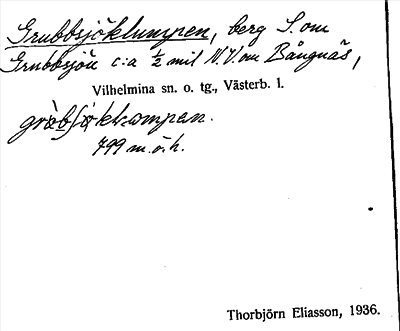 Grubbsjöklumpen, berg S. om
Grubbsjön c:a ½ mil N.V. om Bångnäs,
Vilhelmina sn. o. tg., Västerb. l.
799 m.ö.h.
Thorbjörn Eliasson, 1936.